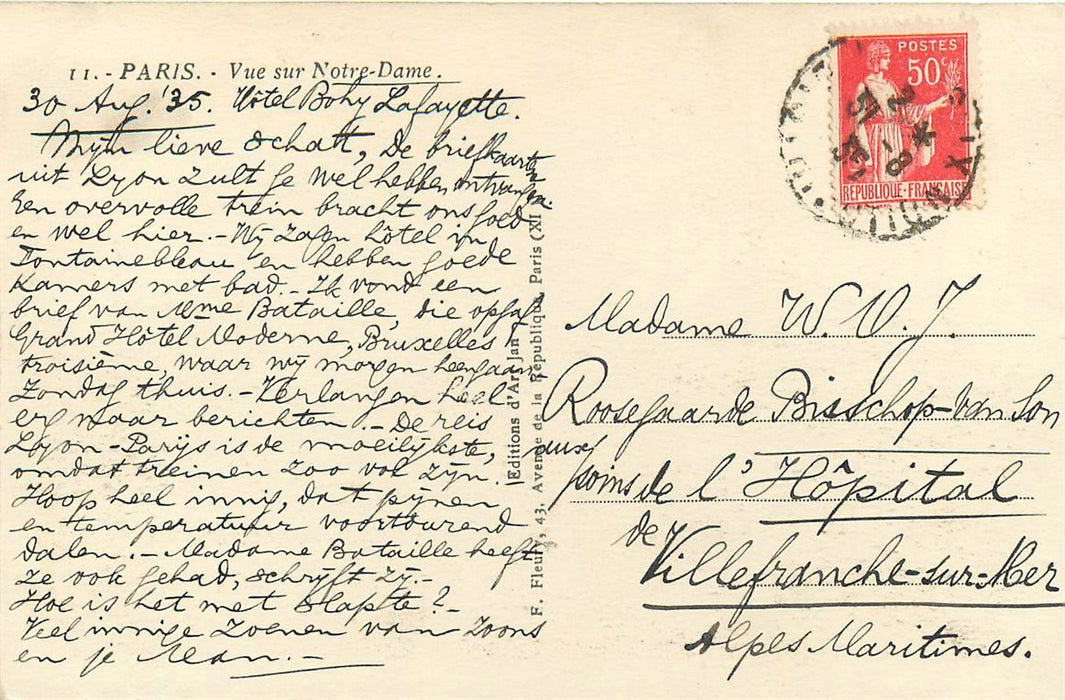 11. - PARIS. - Vue sur Notre-Dame.
30 Aug. '35. Hôtel Bohy Lafayette.
Mijn lieve schatt, De briefkaarte
uit Lyon zult je wel hebben ontvangen.
Een overvolle trein bracht ons goed
en wel hier. - Wij zagen hôtel in
Fontainebleau en hebben goede
Kamers met bad. - Ik vond een
brief van Mme Bataille, die opgaf
Grand Hôtel Moderne, Bruxelles
troisième, waar wij morgen heengaan,
Zondag thuis. - Verlangen heel
erg naar berichten. - De reis
Lyon-Parijs is de moeilijkste,
omdat treinen zoo vol zijn.
Hoop heel innig, dat pijnen
en temperatuur voortdurend
dalen. - Madame Bataille heeft
ze ook gehad, schrijft zij. -
Hoe is het met slapte? -
Veel innige zoenen van zoons
en je Man. -
Editions d'Art Jan
F. Fleury, 43, Avenue de la République, Paris (XI
POSTES
50c
RÉPUBLIQUE-FRANÇAISE
Madame W. V. J.
Roosegaarde Bisschop-van Son
aux soins de l'Hôpital
de Villefranche-sur-Mer
Alpes Maritimes.